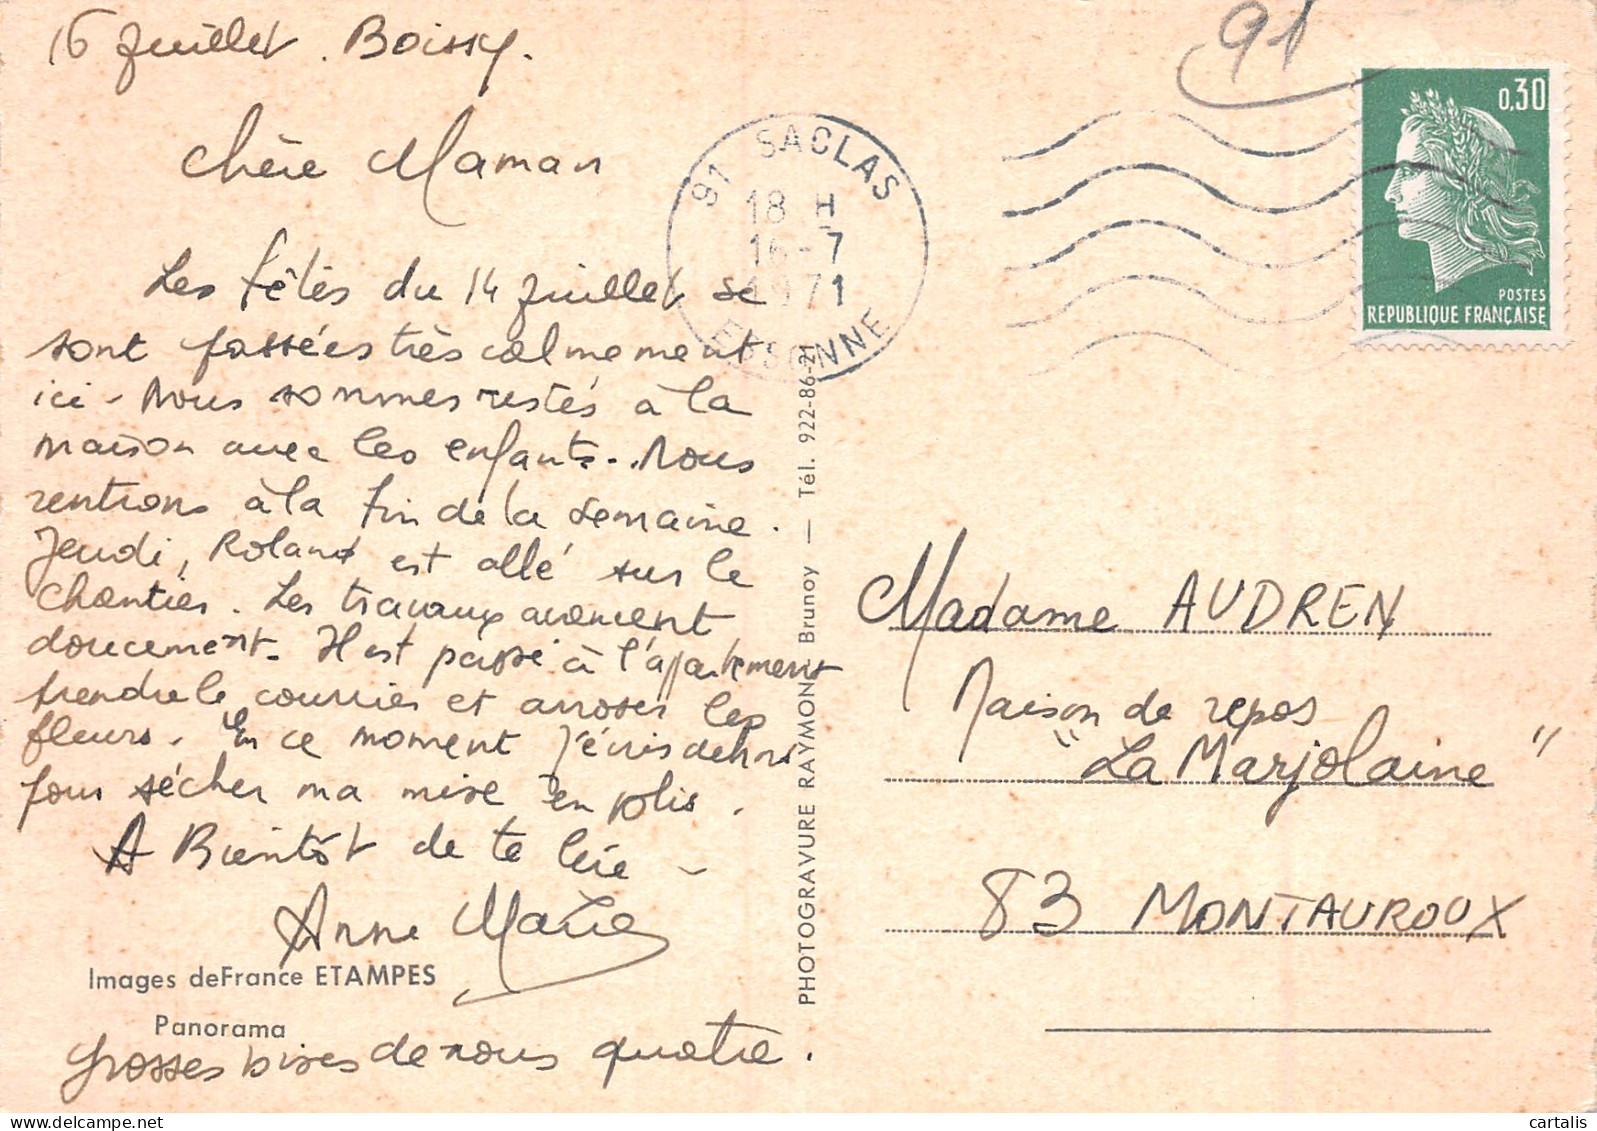 16 Juillet. Boissy.
91
Chère Maman
Les fêtes du 14 Juillet se
sont passées très calmement
ici - Nous sommes restés à la
maison avec les enfants. Nous
rentrons à la fin de la semaine.
Jeudi, Roland est allé sur le
chantier. Les travaux avancent
doucement. Il est passé à l'appartement
prendre le courrier et arroser les
fleurs. En ce moment j'écris dehors
pour sécher ma mise en plis.
A Bientôt de te lire -
Anne Marie
Images deFrance ETAMPES
Panorama
Grosses bises de nous quatre.
91 SACLAS
18 H
16-7
1971
ESSONNE
0,30
POSTES
REPUBLIQUE FRANÇAISE
PHOTOGRAVURE RAYMOND Brunoy — Tél. 922-86-21
Madame AUDREN
Maison de repos
"La Marjolaine"
83 MONTAUROUX
cartalis